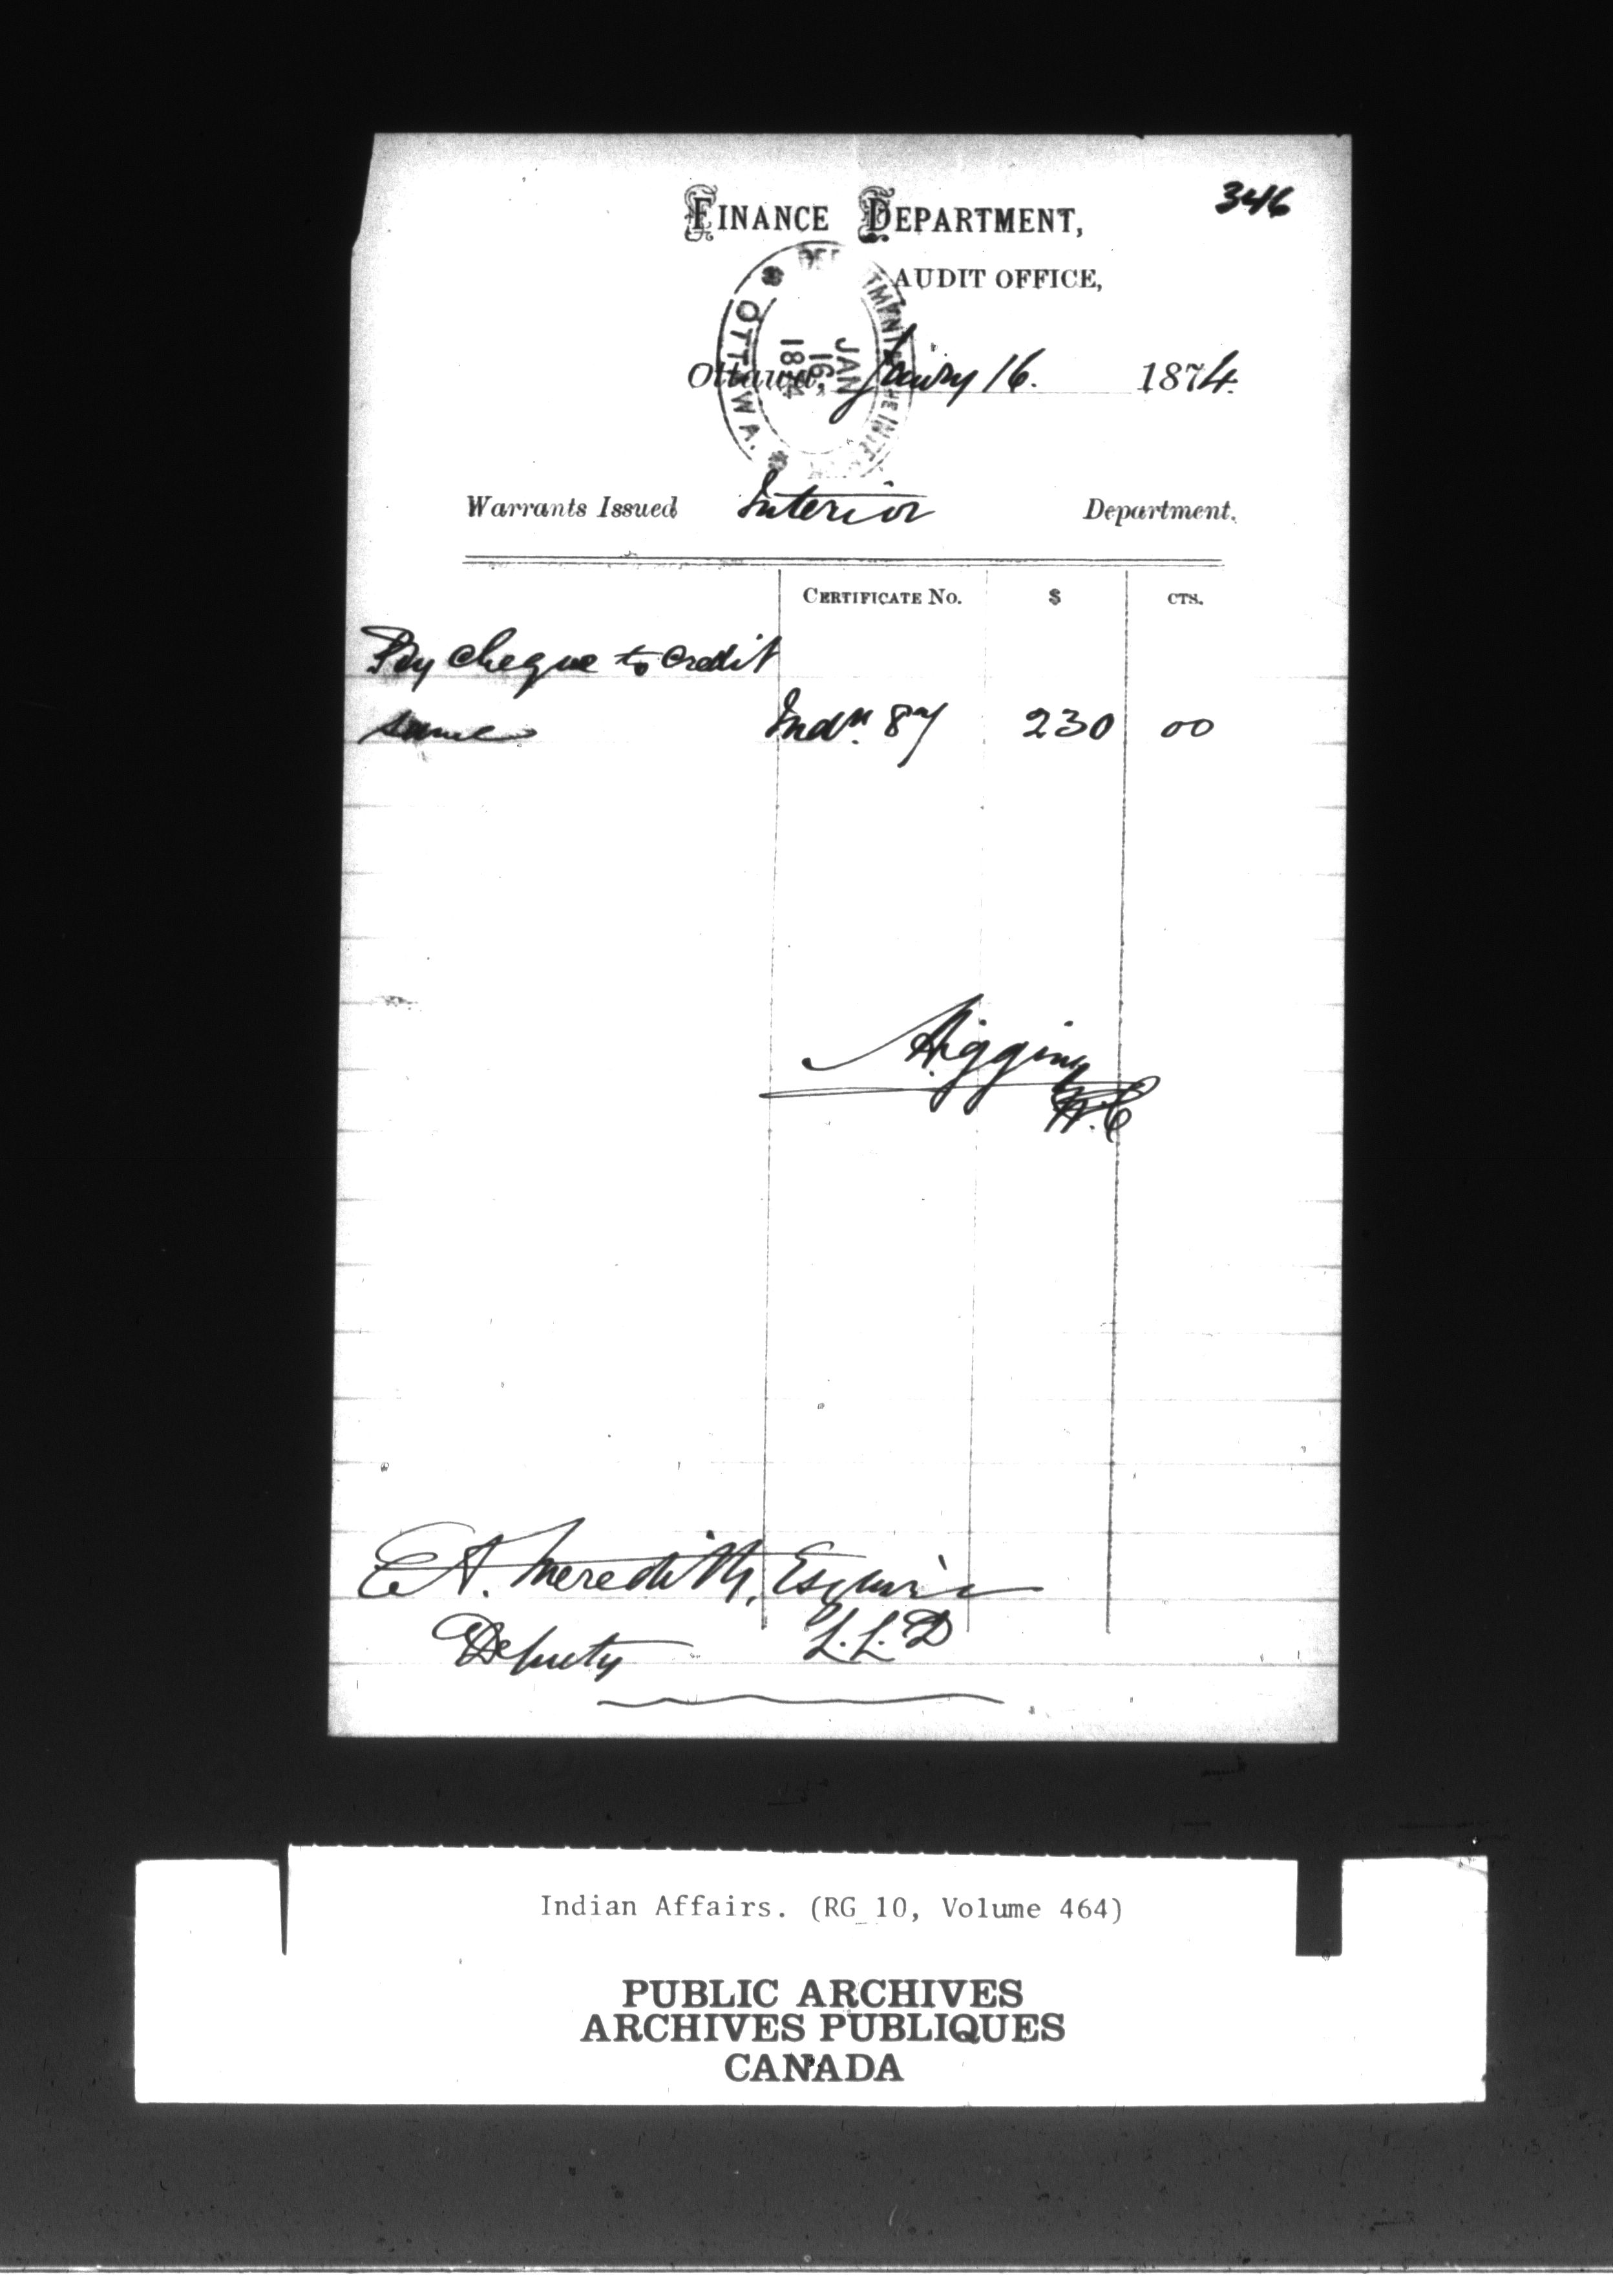 346
FINANCE DEPARTMENT,
AUDIT OFFICE,
DEP TMENT THE INTE
OTTAWA.
JAN
16
1874
Ottawa, January 16. 1874.
Warrants Issued Interior Department.
CERTIFICATE No. $ CTS.
Pay cheque to credit
same Indn. 87 230 00
Higgins
E A. Meredith, Esquire
Deputy L.L.D
Indian Affairs. (RG 10, Volume 464)
PUBLIC ARCHIVES
ARCHIVES PUBLIQUES
CANADA